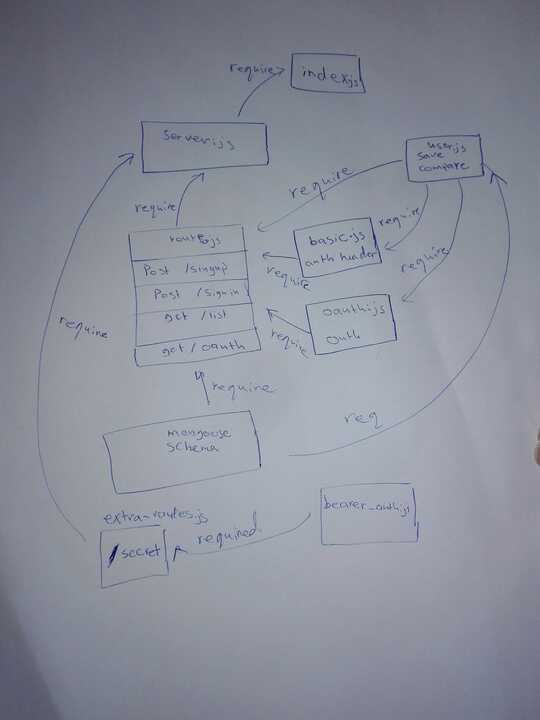 require
index.js
server.js
user.js
save
compare
require
require
route.js
Post /singup
Post /signin
get /list
get / oauth
basic.js
auth header
require
require
require
oauth.js
outh
require
require
require
mongouse
schema
req
extra-routes.js
/secret
required
bearer_outh.js